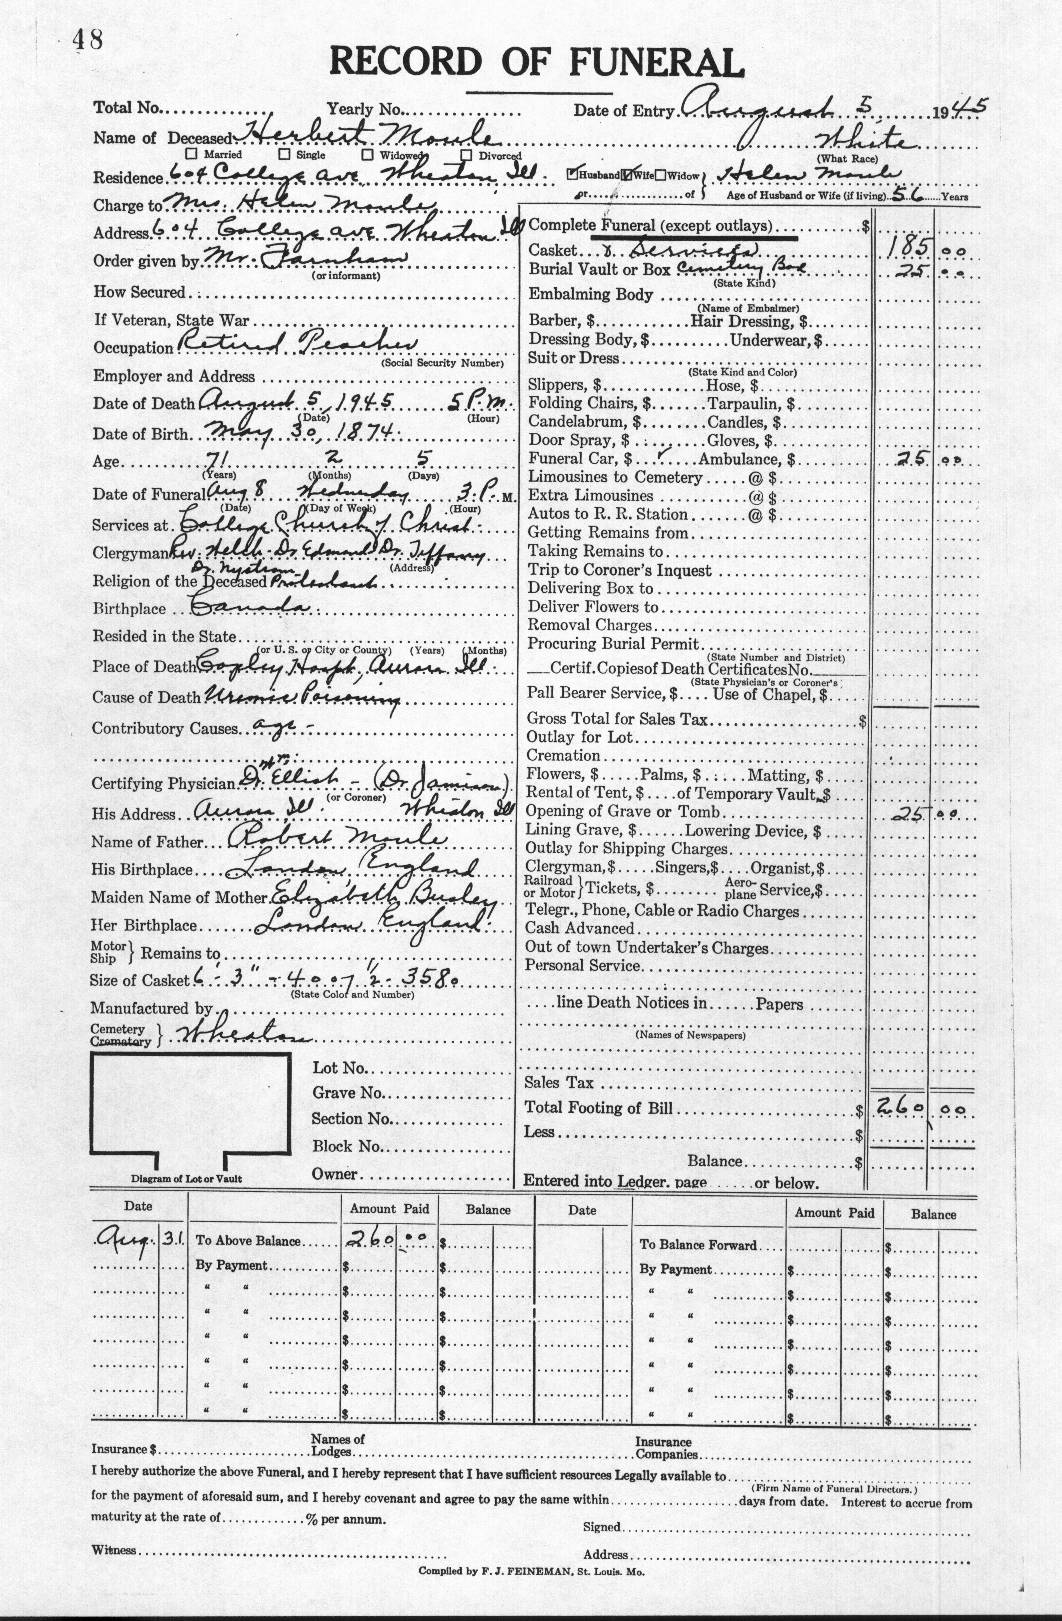 48
RECORD OF FUNERAL
Total No. Yearly No. Date of Entry August 5, 1945
Name of Deceased Herbert Moule White
Married Single Widowed Divorced (What Race)
Residence 604 College ave, Wheaton Ill. Husband Wife Widow } Helen Moule
or of } Age of Husband or Wife (if living) 56 Years
Charge to Mrs. Helen Moule
Address 604 College ave Wheaton Ill
Order given by Mr. Farnham
(or informant)
How Secured
If Veteran, State War
Occupation Retired Teacher
(Social Security Number)
Employer and Address
Date of Death August 5, 1945 5 P.m.
(Date) (Hour)
Date of Birth May 30, 1874
Age 71 2 5
(Years) (Months) (Days)
Date of Funeral Aug 8 Wednesday 3 P. M.
(Date) (Day of Week) (Hour)
Services at College Church of Christ
Clergyman Rev. Welch - Dr Edmond Dr. Tiffany
Dr. Nystrom (Address)
Religion of the Deceased Protestant
Birthplace Canada
Resided in the State
(or U. S. or City or County) (Years) (Months)
Place of Death Copley Hosph, Aurora Ill.
Cause of Death Uremic Poisoning
Contributory Causes age -
Certifying Physician Dr. Wm. Ellish - (Dr Jamison)
(or Coroner)
His Address Aurora Ill. Wheaton Ill
Name of Father Robert Moule
His Birthplace London England
Maiden Name of Mother Elizabeth
Her Birthplace London England
Motor Ship } Remains to
Size of Casket 6'- 3" - 4007 1/2 - 3580
(State Color and Number)
Manufactured by
Cemetery Crematory } Wheaton
Lot No.
Grave No.
Section No.
Block No.
Owner
Diagram of Lot or Vault
Complete Funeral (except outlays) $
Casket & Services 185 00
Burial Vault or Box Cemetery Box 25 00
(State Kind)
Embalming Body
(Name of Embalmer)
Barber, $ Hair Dressing, $
Dressing Body, $ Underwear, $
Suit or Dress
(State Kind and Color)
Slippers, $ Hose, $
Folding Chairs, $ Tarpaulin, $
Candelabrum, $ Candles, $
Door Spray, $ Gloves, $
Funeral Car, $ ✓ Ambulance, $ 25 00
Limousines to Cemetery @ $
Extra Limousines @ $
Autos to R. R. Station @ $
Getting Remains from
Taking Remains to
Trip to Coroner's Inquest
Delivering Box to
Deliver Flowers to
Removal Charges
Procuring Burial Permit
(State Number and District)
Certif. Copies of Death Certificates No.
(State Physician's or Coroner's
Pall Bearer Service, $ Use of Chapel, $
Gross Total for Sales Tax $
Outlay for Lot
Cremation
Flowers, $ Palms, $ Matting, $
Rental of Tent, $ of Temporary Vault, $
Opening of Grave or Tomb 25 00
Lining Grave, $ Lowering Device, $
Outlay for Shipping Charges
Clergyman, $ Singers, $ Organist, $
Railroad or Motor } Tickets, $ Aeroplane Service, $
Telegr., Phone, Cable or Radio Charges
Cash Advanced
Out of town Undertaker's Charges
Personal Service
line Death Notices in Papers
(Names of Newspapers)
Sales Tax
Total Footing of Bill $ 260 00
Less $
Balance $
Entered into Ledger, page or below.
Date Amount Paid Balance Date Amount Paid Balance
Aug. 31 To Above Balance 260 00 $ To Balance Forward $
By Payment $ $ By Payment $ $
" " $ $ " " $ $
" " $ $ " " $ $
" " $ $ " " $ $
" " $ $ " " $ $
" " $ $ " " $ $
" " $ $ " " $ $
Insurance $ Names of Lodges Insurance Companies
I hereby authorize the above Funeral, and I hereby represent that I have sufficient resources Legally available to
(Firm Name of Funeral Directors.)
for the payment of aforesaid sum, and I hereby covenant and agree to pay the same within days from date. Interest to accrue from
maturity at the rate of % per annum.
Signed
Witness Address
Compiled by F. J. FEINEMAN, St. Louis. Mo.